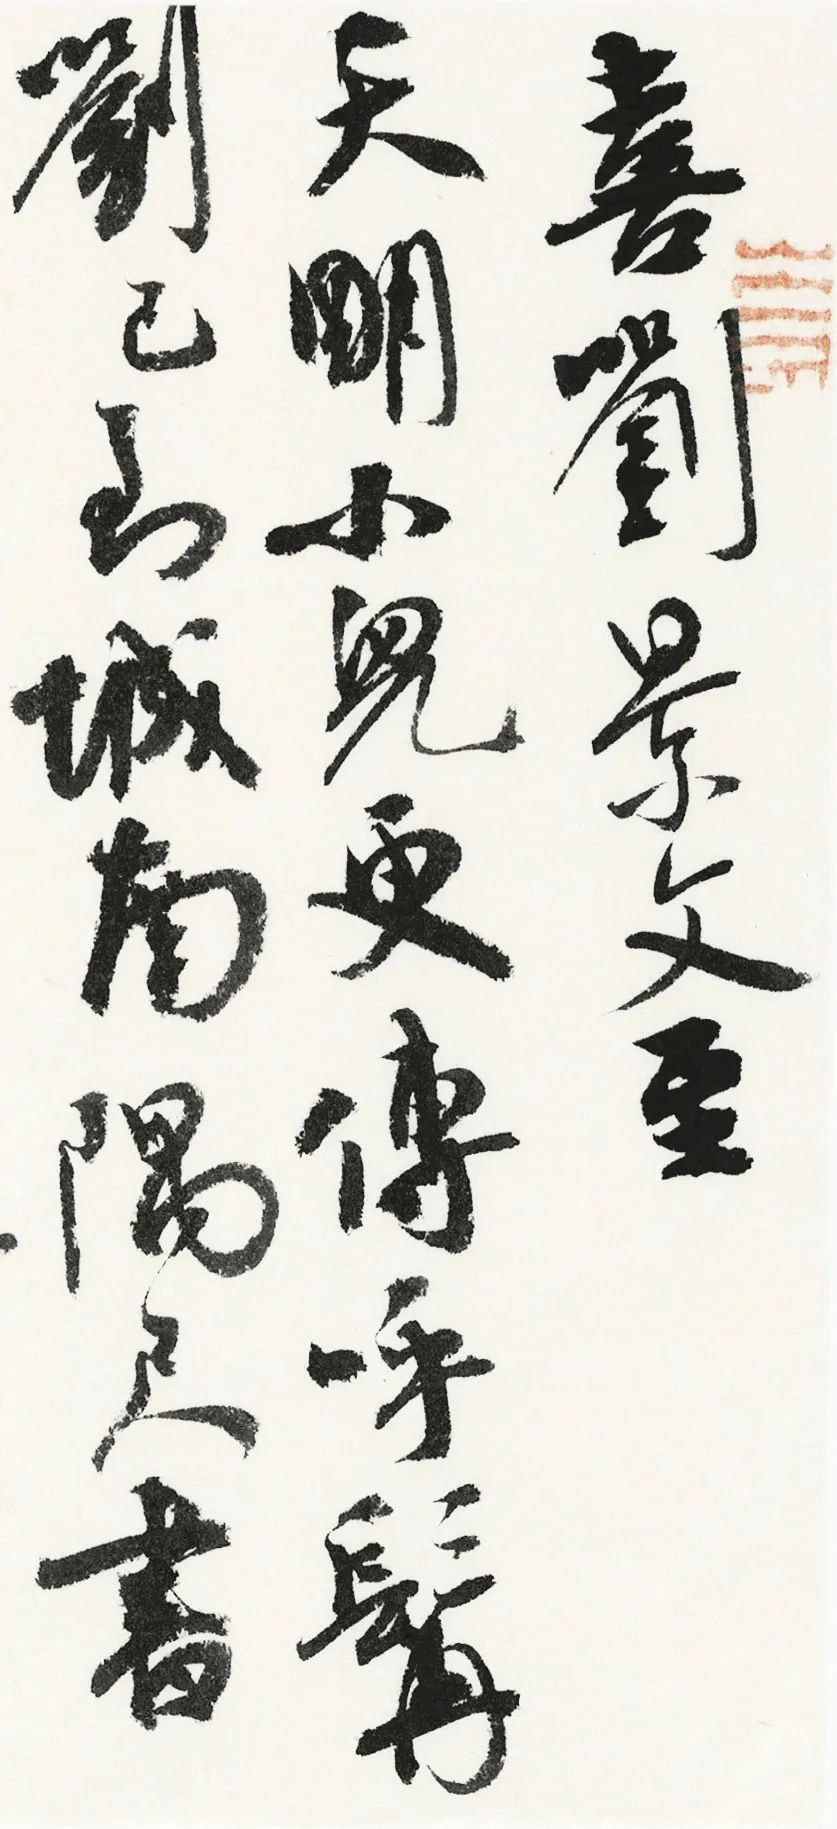 喜劉景文至
天明小兒更傳呼髯
劉已到城南隅尺書